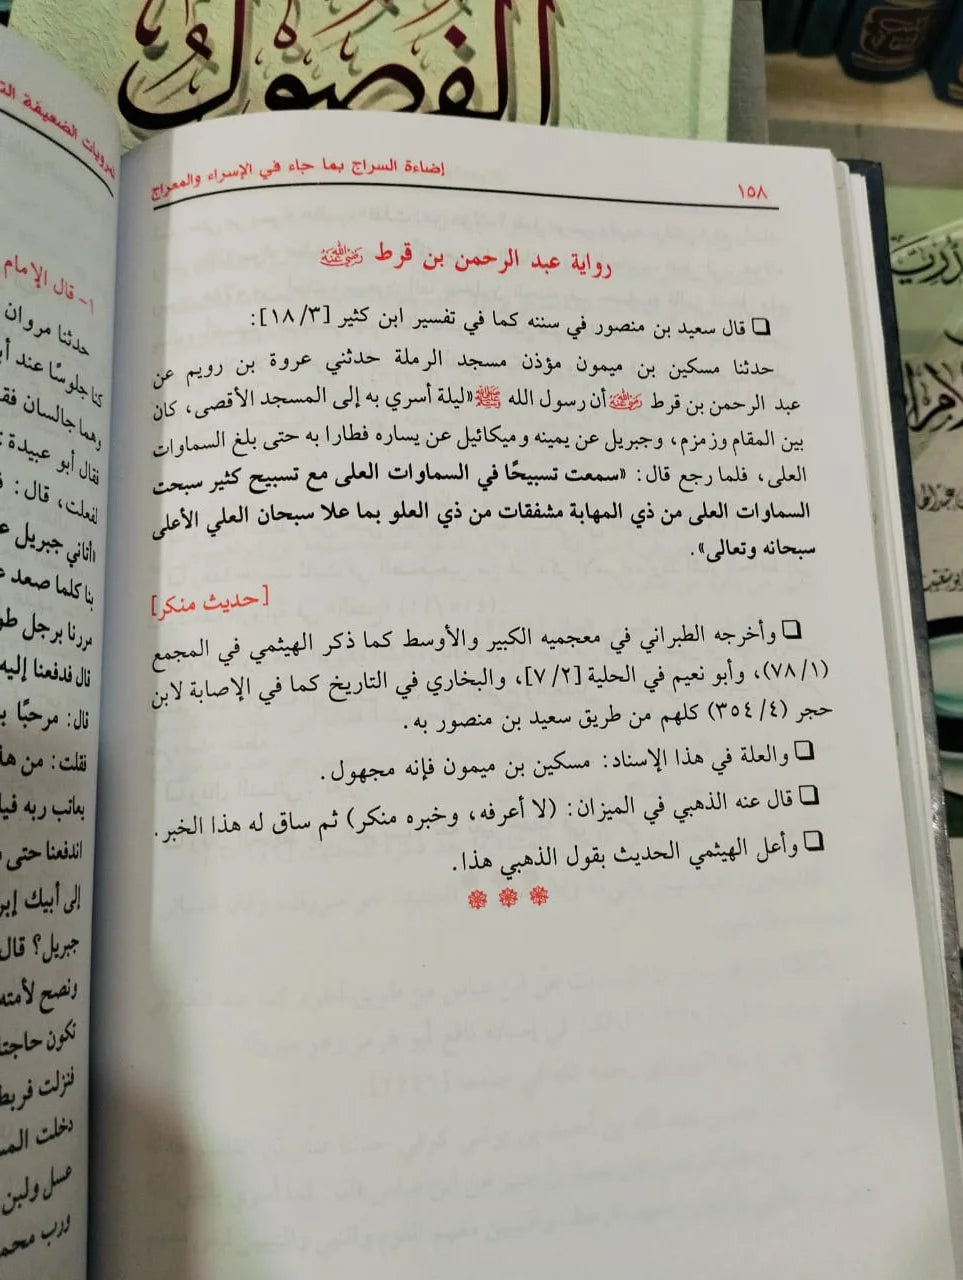 الفصول
إضاءة السراج بما جاء في الإسراء والمعراج
١٥٨
رواية عبد الرحمن بن قرط رضي الله عنه
❑ قال سعيد بن منصور في سننه كما في تفسير ابن كثير [١٨/٣]:
حدثنا مسكين بن ميمون مؤذن مسجد الرملة حدثني عروة بن رويم عن
عبد الرحمن بن قرط رضي الله عنه أن رسول الله ﷺ «ليلة أسري به إلى المسجد الأقصى، كان
بين المقام وزمزم، وجبريل عن يمينه وميكائيل عن يساره فطارا به حتى بلغ السماوات
العلى، فلما رجع قال: «سمعت تسبيحًا في السماوات العلى مع تسبيح كثير سبحت
السماوات العلى من ذي المهابة مشفقات من ذي العلو بما علا سبحان العلي الأعلى
سبحانه وتعالى».
[حديث منكر]
❑ وأخرجه الطبراني في معجميه الكبير والأوسط كما ذكر الهيثمي في المجمع
(٧٨/١)، وأبو نعيم في الحلية [٧/٢]، والبخاري في التاريخ كما في الإصابة لابن
حجر (٣٥٤/٤) كلهم من طريق سعيد بن منصور به.
❑ والعلة في هذا الإسناد: مسكين بن ميمون فإنه مجهول.
❑ قال عنه الذهبي في الميزان: (لا أعرفه، وخبره منكر) ثم ساق له هذا الخبر.
❑ وأعل الهيثمي الحديث بقول الذهبي هذا.
١- قال الإمام
حدثنا مروان
كنا جلوسًا عند
وهما جالسان
فقال أبو عبيدة
لفعلت، قال:
«أتاني جبريل
بنا كلما صعد
مررنا برجل
قال فدفعنا إليه
قال: مرحبًا
نقلت: من
يعاتب ربه
اندفعنا حتى
إلى أبيك
جبريل؟ قال
ونصح لأمته
تكون
فنزلت
دخلت
عسل ولبن
ورب